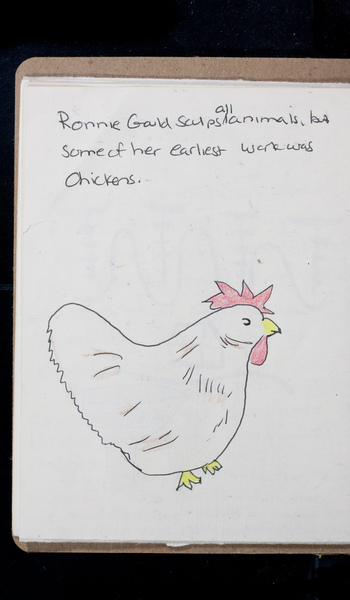 Ronnie Gould sculps all animals, but
some of her earliest work was
Chickens.